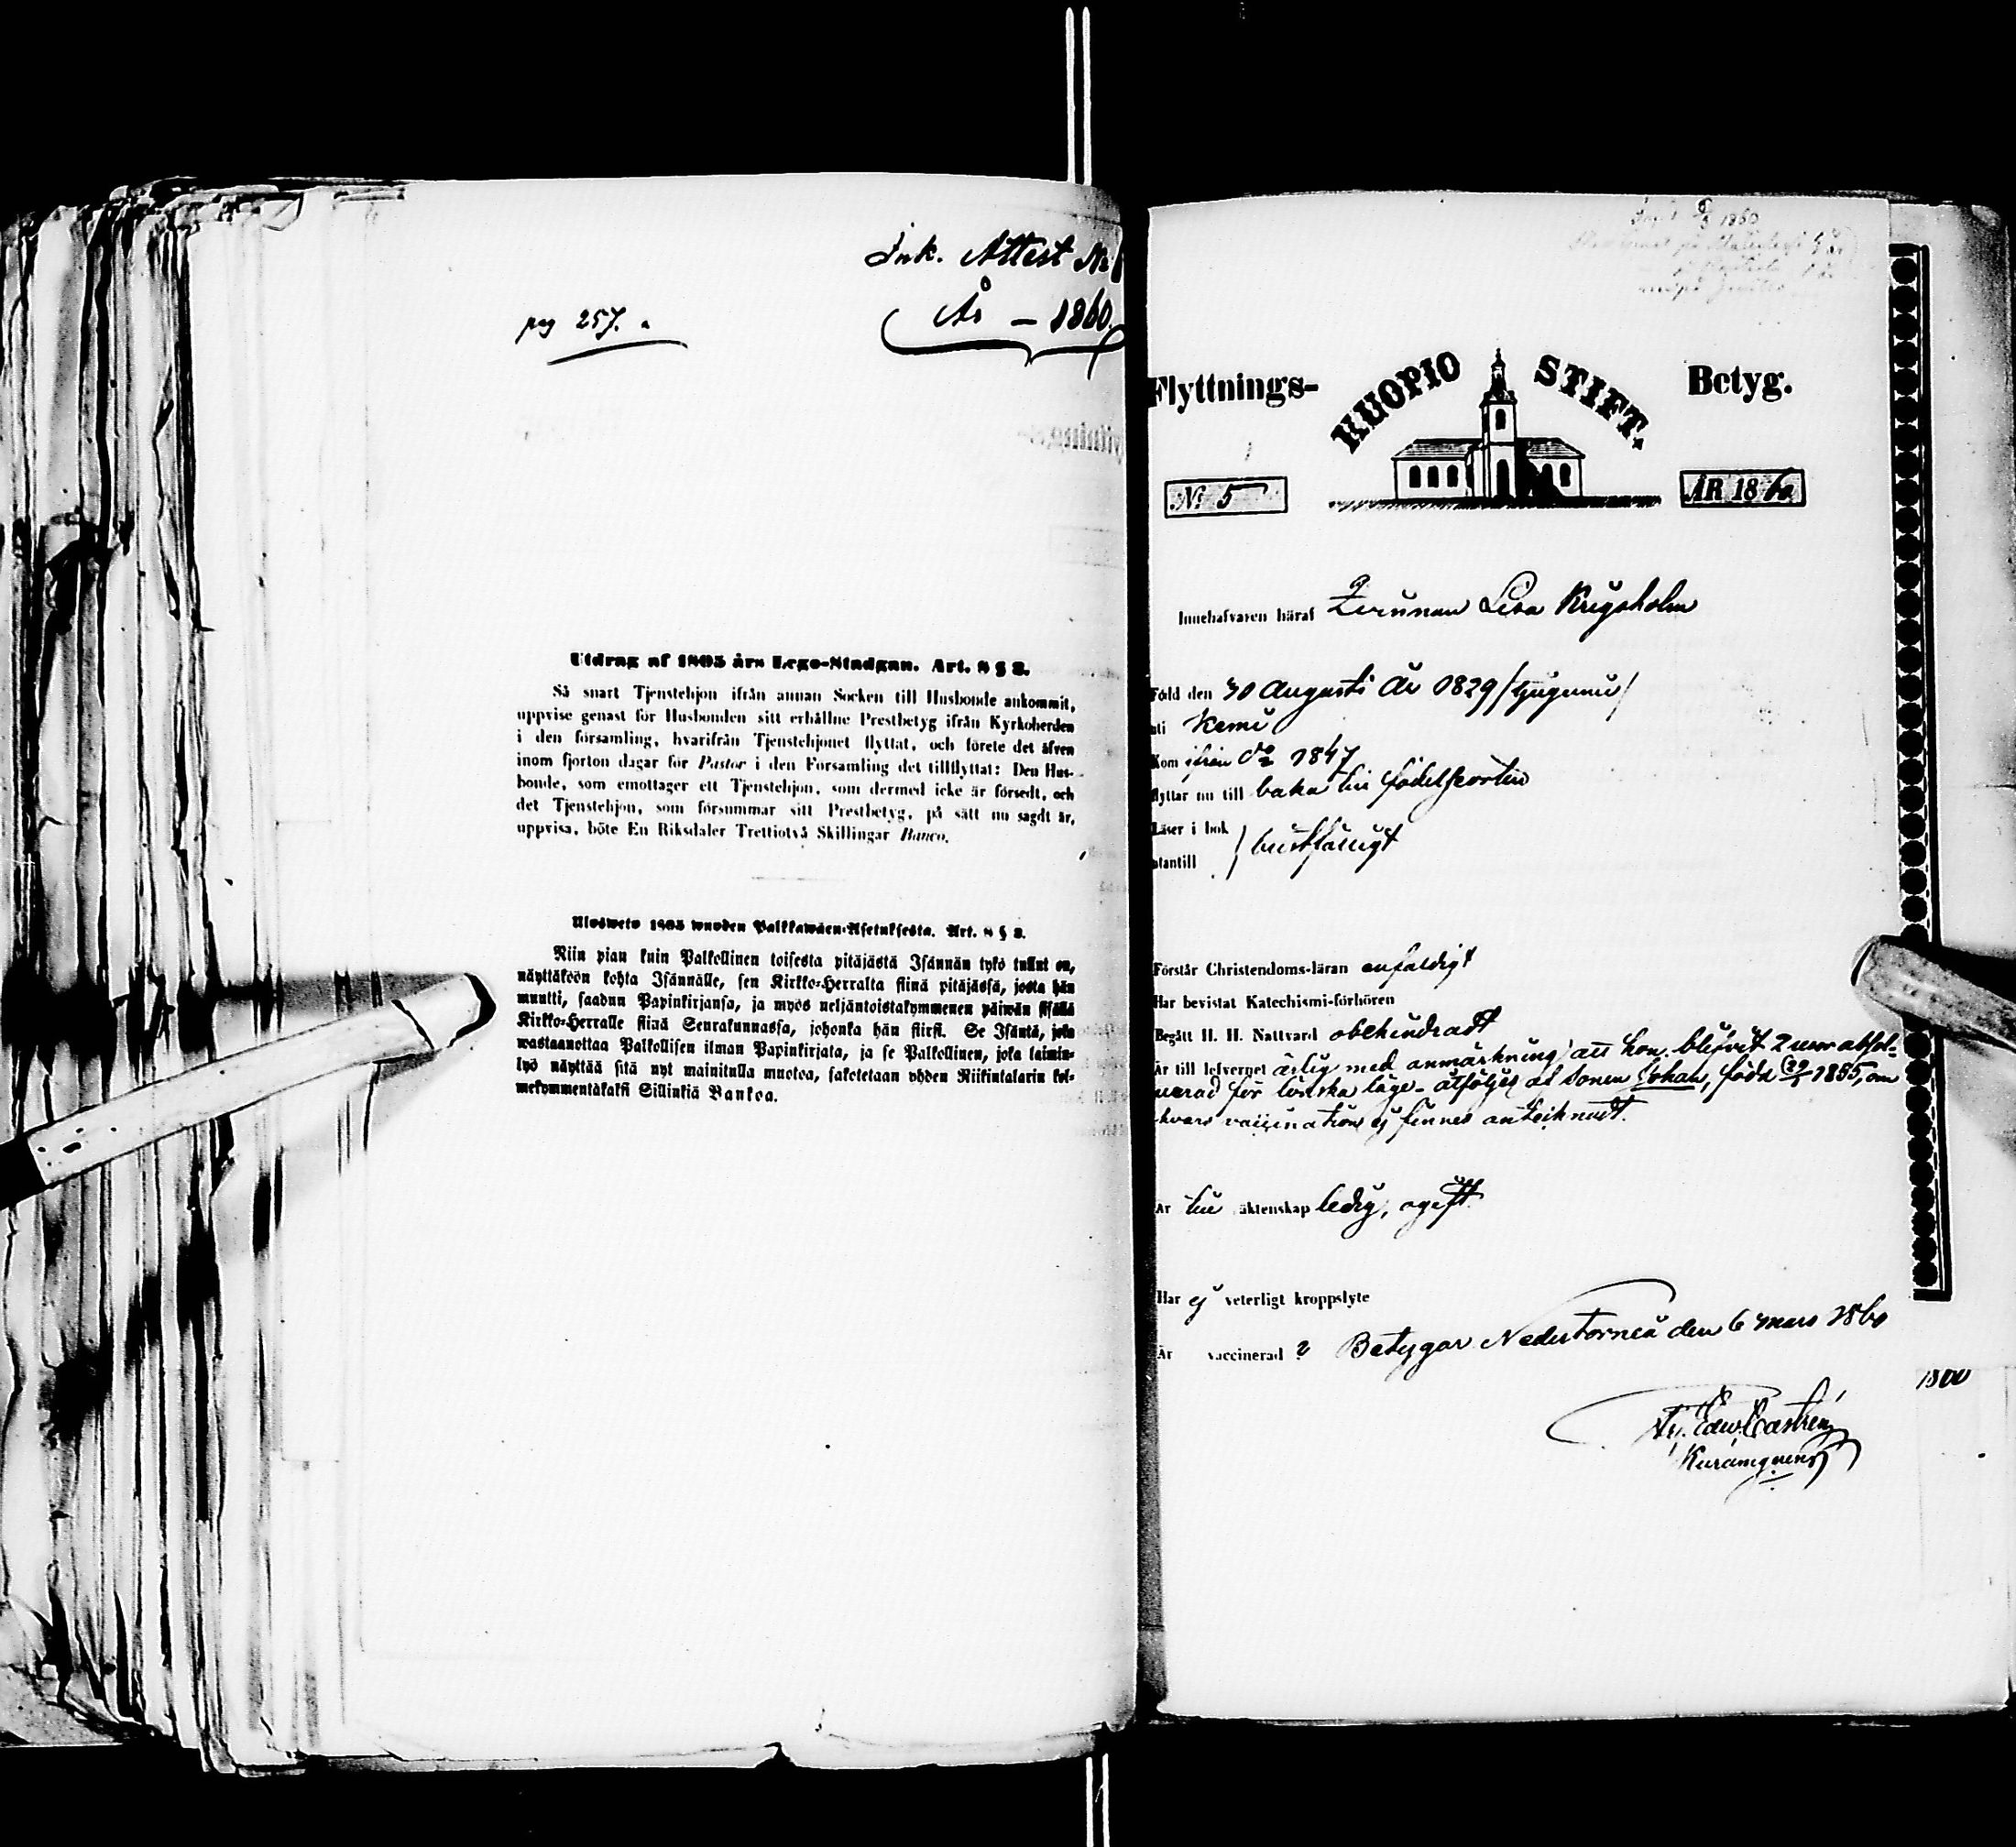 Ink. Attest No
År – 1860.
pag 257.
Utdrag af 1805 års Lego-Stadgan. Art. 8 § 3.
Så snart Tjenstehjon ifrån annan Socken till Husbonde ankommit,
uppvise genast för Husbonden sitt erhållne Prestbetyg ifrån Kyrkoherden
i den församling, hvarifrån Tjenstehjonet flyttat, och förete det äfven
inom fjorton dagar för Pastor i den Församling det tillflyttat: Den Hus-
bonde, som emottager ett Tjenstehjon, som dermed icke är försedt, och
det Tjenstehjon, som försummar sitt Prestbetyg, på sätt nu sagdt är,
uppvisa, böte En Riksdaler Trettiotvå Skillingar Banco.
Ulosweto 1805 wuoden Palkkawäen-Asetuksesta. Art. 8 § 3.
Niin pian kuin Palkollinen toisesta pitäjästä Isännän tykö tullut on,
näyttäköön kohta Isännälle, sen Kirkko-Herralta siinä pitäjässä, josta hän
muutti, saadun Papinkirjansa, ja myös neljäntoistakymmenen päiwän sisällä
Kirkko-Herralle siinä Seurakunnassa, johonka hän siirsi. Se Isäntä, joka
wastaanottaa Palkollisen ilman Papinkirjata, ja se Palkollinen, joka laimin-
lyö näyttää sitä nyt mainitulla muotoa, sakotetaan yhden Riikintalarin kol-
mekymmentäkaksi Sillinkiä Bankoa.
1860
Flyttnings- KUOPIO STIFT. Betyg.
No 5 ÅR 1860
Innehafvaren häraf Lisa Krigsholm
Född den 30 Augusti År 1829 /tjugunio/
uti Kemi
Kom ifrån do 1847
flyttar nu till baka till födelseorten
Läser i bok
utantill } butfärdigt
Förstår Christendoms-läran enfaldigt
Har bevistat Katechismi-förhören
Begått H. H. Nattvard obehindradt
Är till lefvernet ärlig med anmärkning att hon blifvit 2 absol-
verad för lönska läge – åtföljes af sonen Johan, född 1855, om
hvars vaccination ej finnes antecknadt.
Är till äktenskap ledig, ogift.
Har ej veterligt kroppslyte
Är vaccinerad ? Betygar Nedertorneå den 6 mars 1860
1800
Edw. Castrén